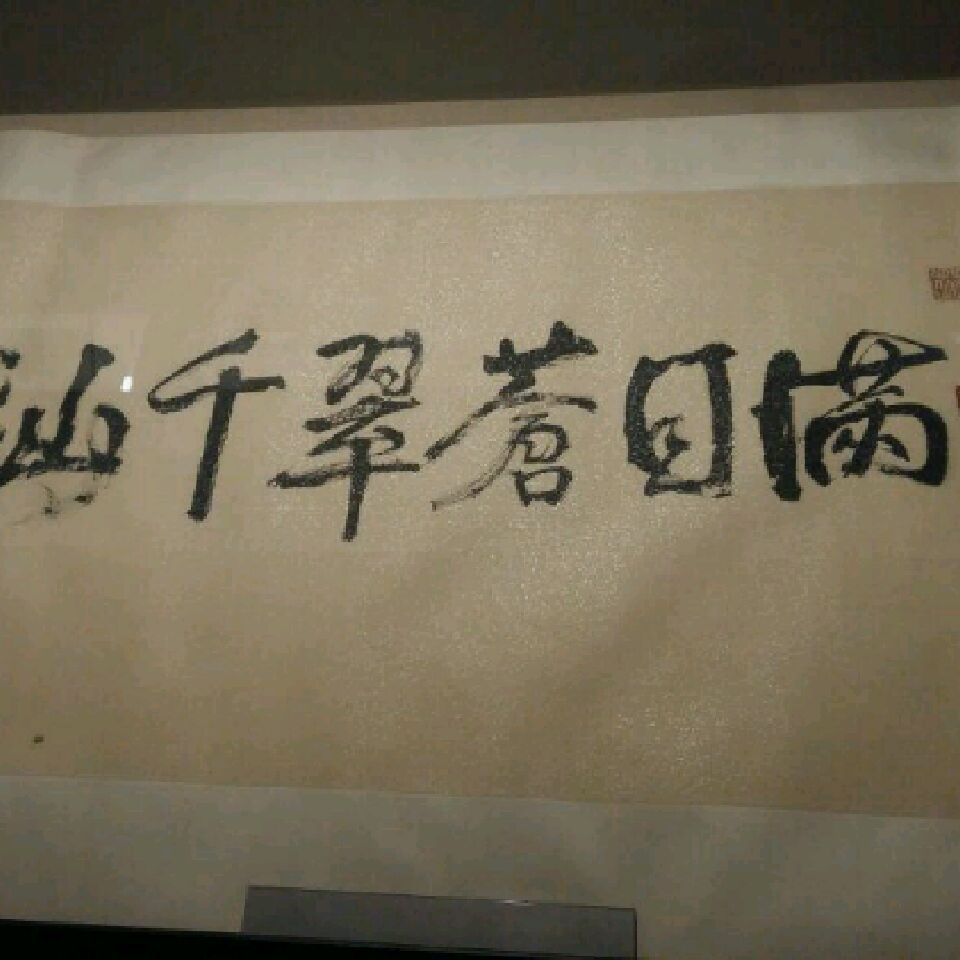 满目蒼翠千山